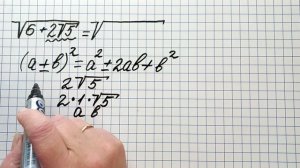 √(6 + 2√5) = √
(a ± b)² = a² ± 2ab + b²
2√5
2 · 1 · √5
a b